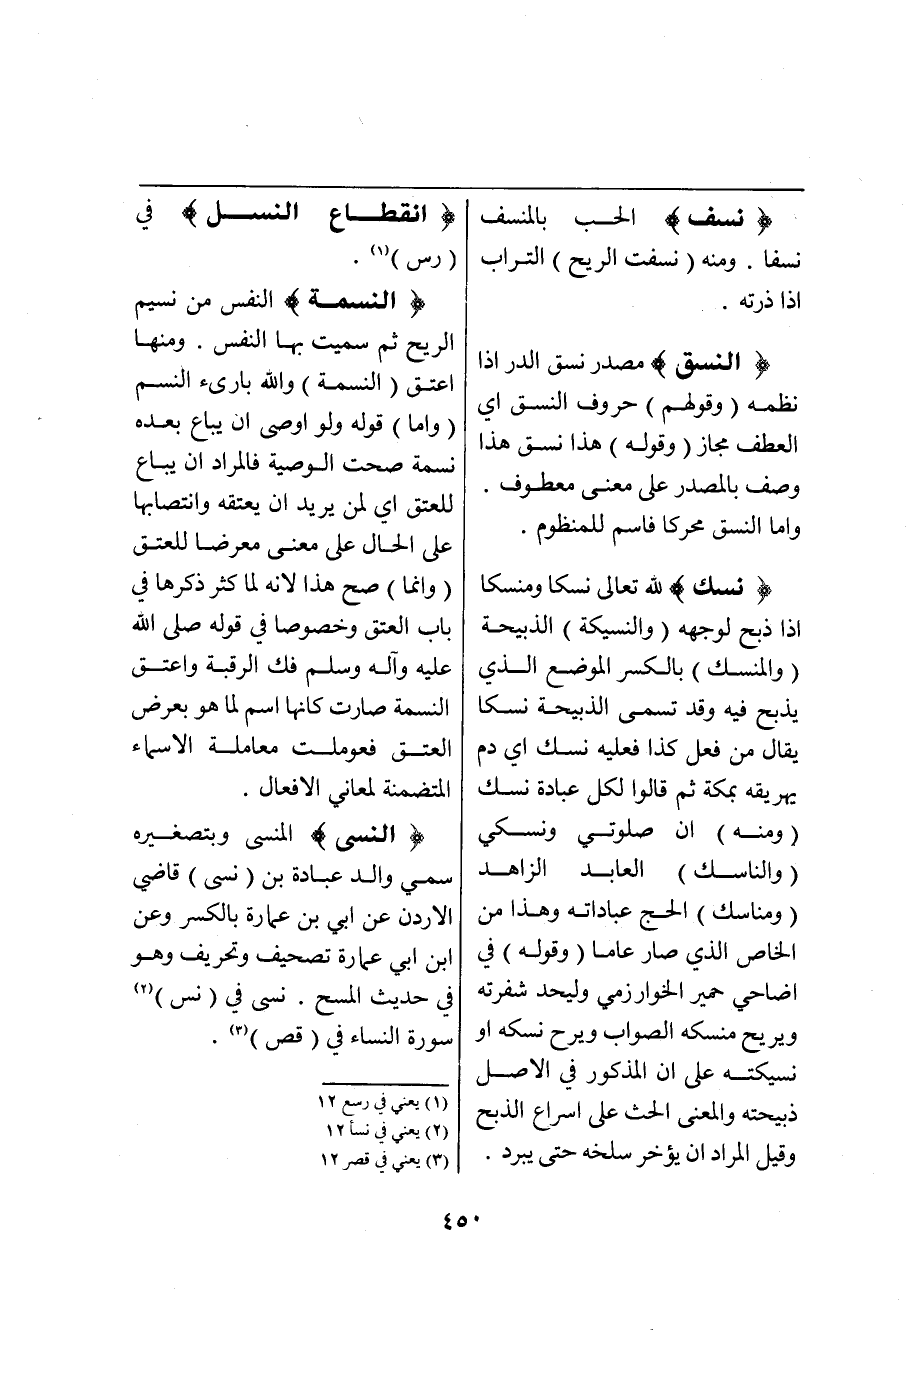 ﴿ نسف ﴾ الحب بالمنسف
نسفا . ومنه ( نسفت الريح ) التراب
اذا ذرته .
﴿ النسق ﴾ مصدر نسق الدر اذا
نظمه ( وقولهم ) حروف النسق اي
العطف مجاز ( وقوله ) هذا نسق هذا
وصف بالمصدر على معنى معطوف .
واما النسق محركا فاسم للمنظوم .
﴿ نسك ﴾ لله تعالى نسكا ومنسكا
اذا ذبح لوجهه ( والنسيكة ) الذبيحة
( والمنسك ) بالكسر الموضع الذي
يذبح فيه وقد تسمى الذبيحة نسكا
يقال من فعل كذا فعليه نسك اي دم
يهريقه بمكة ثم قالوا لكل عبادة نسك
( ومنه ) ان صلوتي ونسكي
( والناسك ) العابد الزاهد
( ومناسك ) الحج عباداته وهذا من
الخاص الذي صار عاما ( وقوله ) في
اضاحي حمير الخوارزمي وليحد شفرته
ويريح منسكه الصواب ويرح نسكه او
نسيكته على ان المذكور في الاصل
ذبيحته والمعنى الحث على اسراع الذبح
وقيل المراد ان يؤخر سلخه حتى يبرد .
﴿ انقطاع النسل ﴾ في
( رس )(١) .
﴿ النسمة ﴾ النفس من نسيم
الريح ثم سميت بها النفس . ومنها
اعتق ( النسمة ) والله بارىء النسم
( واما ) قوله ولو اوصى ان يباع بعده
نسمة صحت الوصية فالمراد ان يباع
للعتق اي لمن يريد ان يعتقه وانتصابها
على الحال على معنى معرضا للعتق
( وانما ) صح هذا لانه لما كثر ذكرها في
باب العتق وخصوصا في قوله صلى الله
عليه وآله وسلم فك الرقبة واعتق
النسمة صارت كانها اسم لما هو بعرض
العتق فعوملت معاملة الاسماء
المتضمنة لمعاني الافعال .
﴿ النسى ﴾ المنسى وبتصغيره
سمي والد عبادة بن ( نسى ) قاضي
الاردن عن ابي بن عمارة بالكسر وعن
ابن ابي عمارة تصحيف وتحريف وهو
في حديث المسح . نسى في ( نس )(٢)
سورة النساء في ( قص )(٣) .
(١) يعني في رسع ١٢
(٢) يعني في نسأ ١٢
(٣) يعني في قصر ١٢
٤٥٠